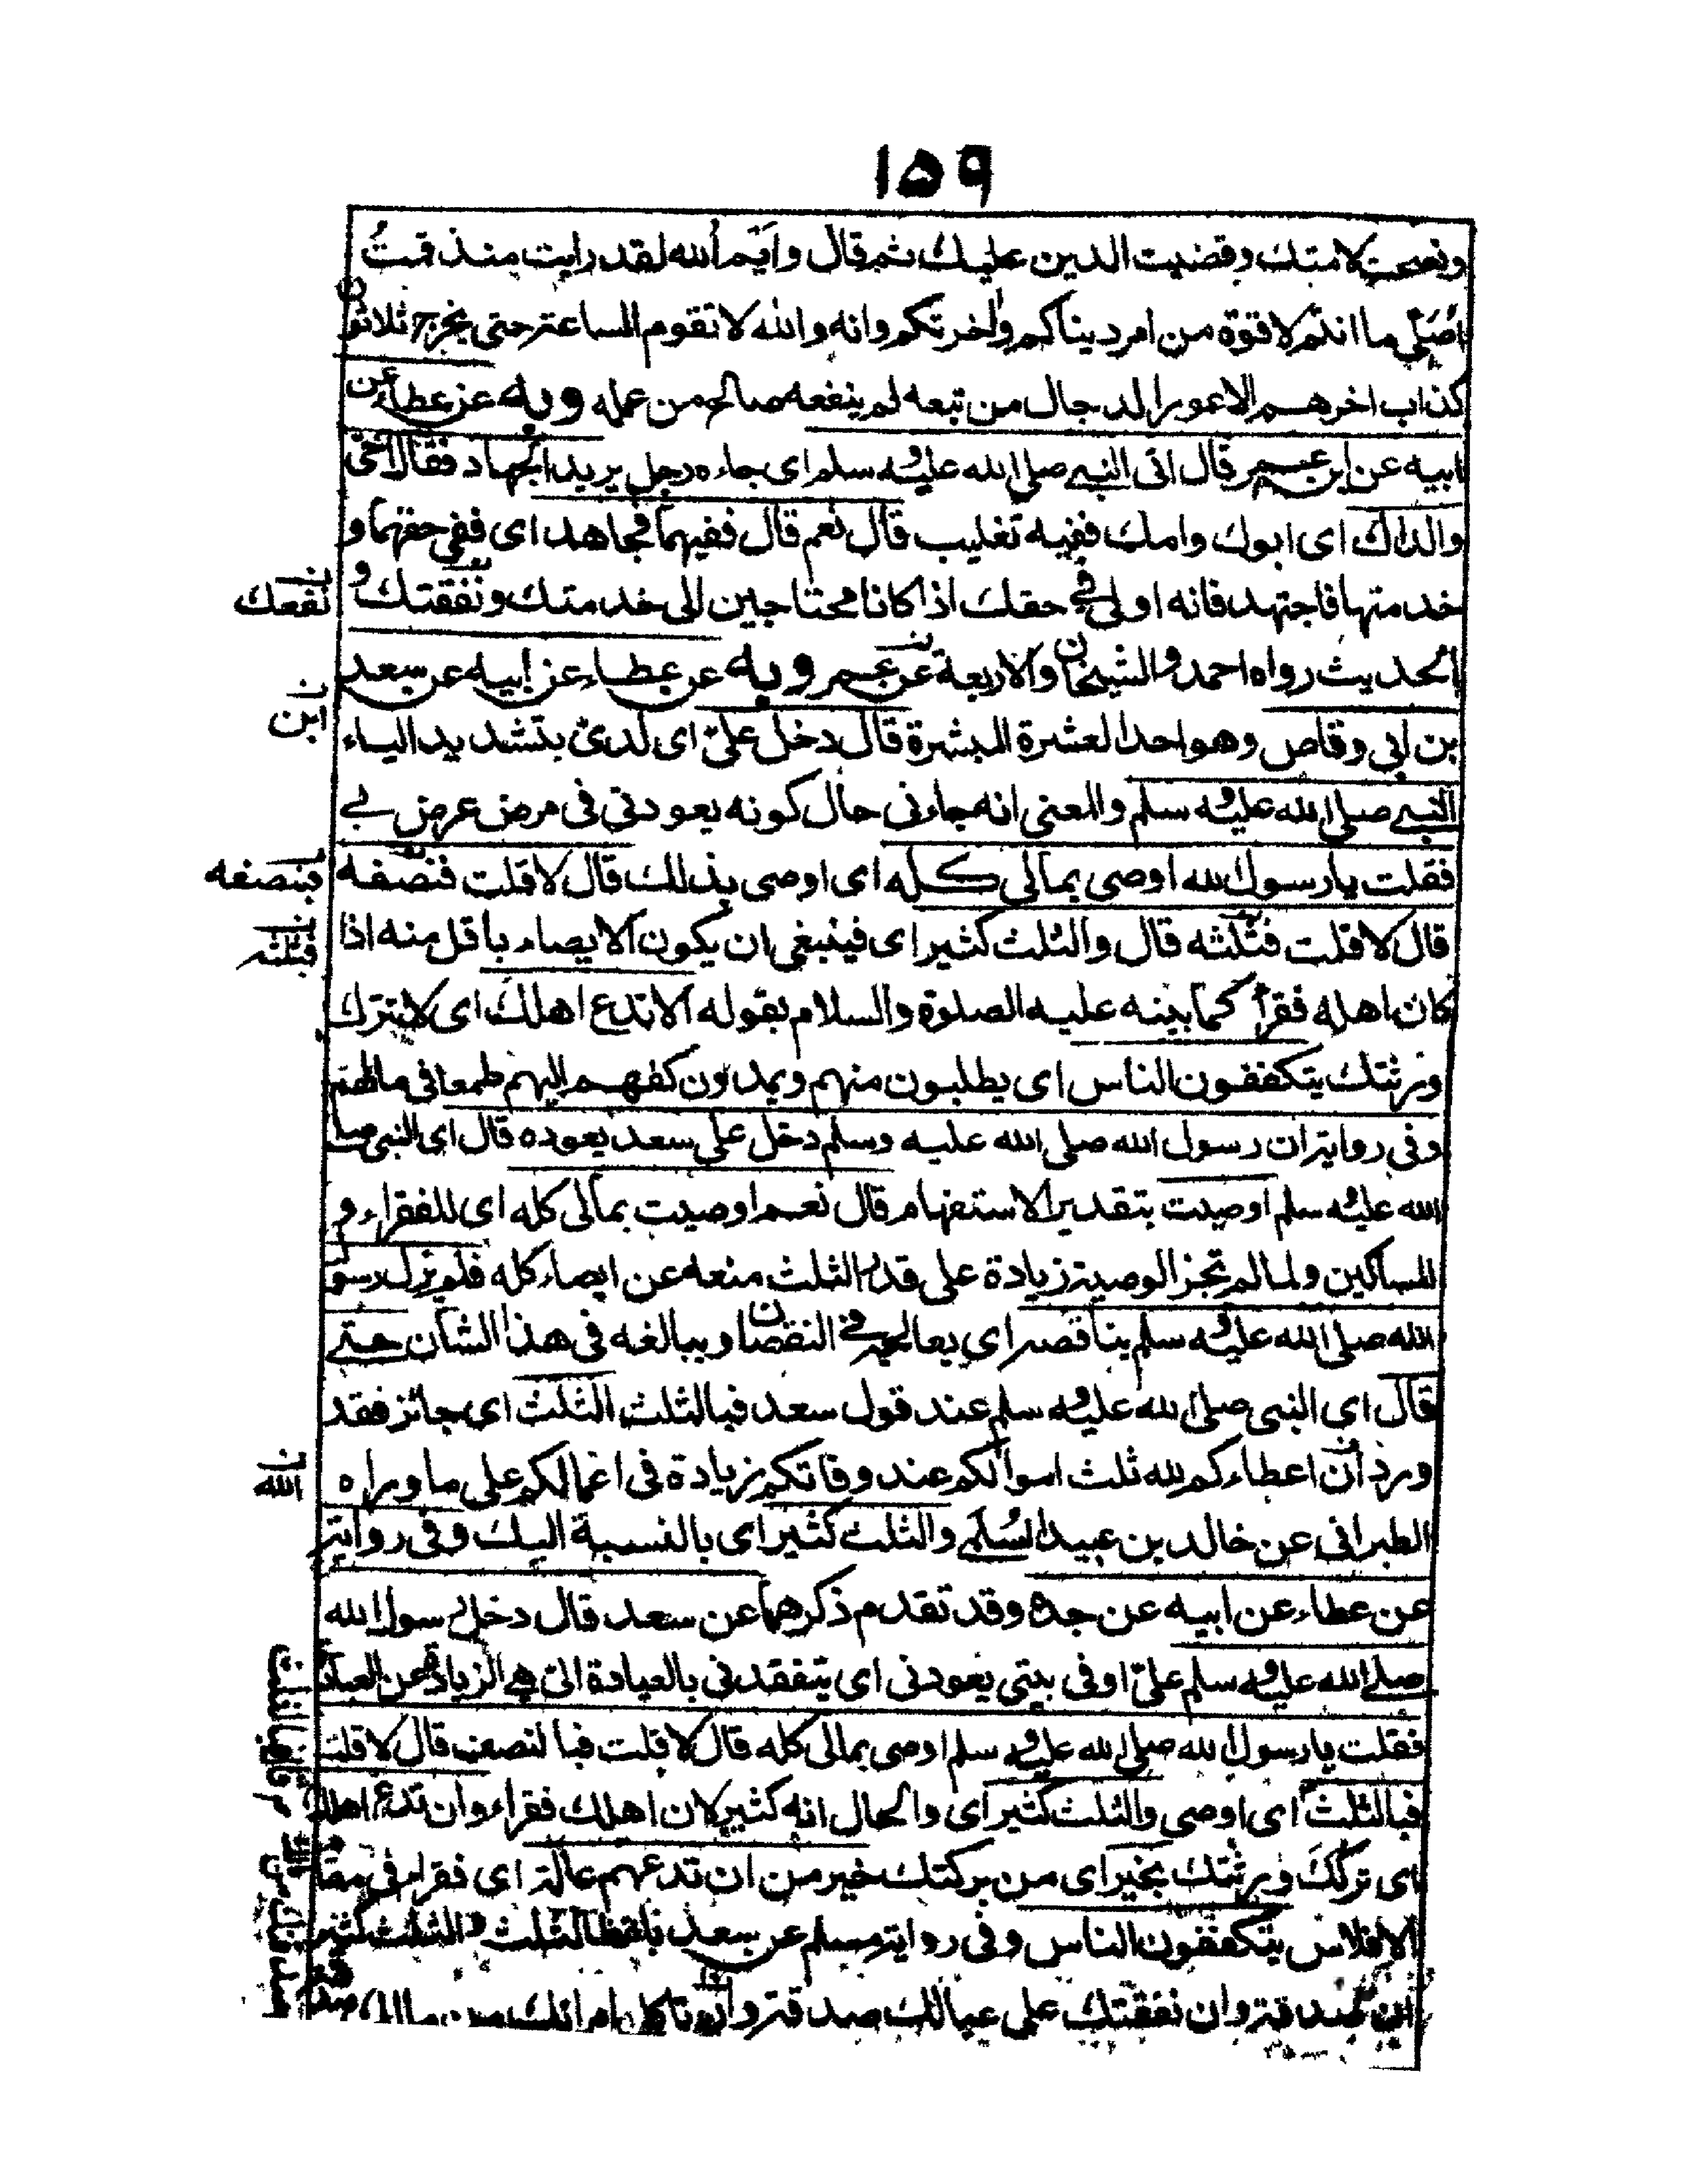 ١٥٩
ونصحت لامتك وقضيت الدين عليك ثم قال وايم الله لقد رايت منذ قمتُ
اصلى ما انتم لاقوة من امر دنياكم واخرتكم وانه والله لا تقوم الساعة حتى يخرج ثلاثون
كذاب اخرهم الاعور الدجال من تبعه لم ينفعه صالح من عمله وبه عن عطاء عن
ابيه عن ابن عمر قال اتى النبي صلى الله عليه وسلم اى جاءه رجل يريد الجهاد فقال احَى
والداك اى ابوك وامك ففيه تغليب قال نعم قال ففيهما فجاهد اى ففى حقهما و
خدمتهما فاجتهد فانه اولى فى حقك اذا كانا محتاجين الى خدمتك ونفقتك و
نفعك
الحديث رواه احمد والشيخان والاربعة عن عمر وبه عن عطاء عن ابيه عن سعد
ابن
بن ابى وقاص وهو احد العشرة المبشرة قال دخل علىّ اى لدىّ بتشديد الياء
النبي صلى الله عليه وسلم والمعنى انه جاءنى حال كونه يعودنى فى مرض عرض بى
فقلت يارسول الله اوصى بمالى كله اى اوصى بذلك قال لا قلت فنصفه
فبنصفه
قال لا قلت فثلثه قال والثلث كثير اى فينبغى ان يكون الايصاء باقل منه اذا
فبثلثه
كان اهله فقراء كما بينه عليه الصلوة والسلام بقوله الا تدع اهلك اى لا تترك
ورثتك يتكففون الناس اى يطلبون منهم ويمدون كفهم اليهم طمعا فى مالهم
وفى رواية ان رسول الله صلى الله عليه وسلم دخل على سعد يعوده قال اى النبى صلى
الله عليه وسلم اوصيت بتقدير الاستفهام قال نعم اوصيت بمالى كله اى للفقراء و
المساكين ولما لم تجز الوصية زيادة على قدر الثلث منعه عن ايصاء كله فلم يزل رسول
الله صلى الله عليه وسلم يناقصه اى يعالجه فى النقصان ويبالغه فى هذا الشان حتى
قال اى النبى صلى الله عليه وسلم عند قول سعد فبالثلث الثلث اى جائز فقد
ورد ان اعطاءكم لله ثلث اموالكم عند وفاتكم زيادة فى اعمالكم على ما رواه
الله
الطبرانى عن خالد بن عبيد السُلَمى والثلث كثير اى بالنسبة اليك وفى رواية
عن عطاء عن ابيه عن جده وقد تقدم ذكرهما عن سعد قال دخل رسول الله
صلى الله عليه وسلم علىّ اوفى بيتى يعودنى اى يتفقدنى بالعيادة التى هى الزيادة عن العبادة
فقلت يارسول الله صلى الله عليه وسلم اوصى بمالى كله قال لا قلت فبالنصف قال لا قلت
فبالثلث اى اوصى والثلث كثير اى والحال انه كثير لان اهلك فقراء وان تدع اهلك
اى تركك ورثتك بخير اى من بركتك خير من ان تدعهم عالة اى فقراء فى مقام
الافلاس يتكففون الناس وفى رواية مسلم عن سعد بلفظ الثلث والثلث كثير
ان صدقة وان نفقتك على عيالك صدقة وان ما تاكل امرأتك من مالك صدقة